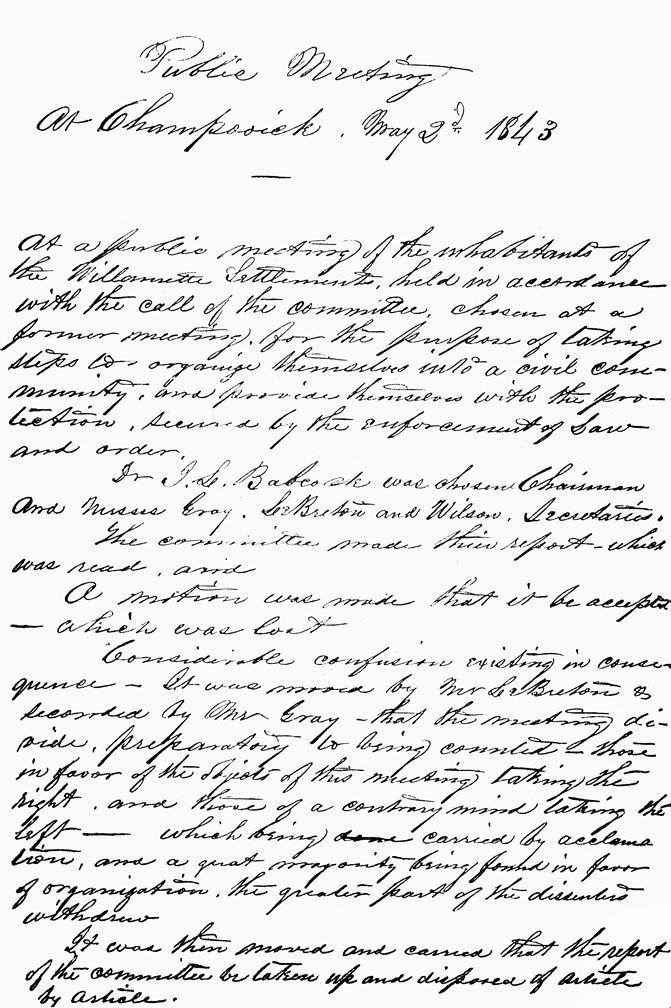 Public Meeting
At Champooick. May 2d 1843
At a public meeting of the inhabitants of
the Willamette Settlements, held in accordance
with the call of the committee, chosen at a
former meeting, for the purpose of taking
steps to organize themselves into a civil com-
munity, and provide themselves with the pro-
tection, secured by the enforcement of Law
and order.
Dr I. L. Babcock was chosen Chairman
And Messrs Gray, LeBreton and Wilson, Secretaries.
The committee made their report - which
was read, and
A motion was made that it be accepted
— which was lost
Considerable confusion existing in conse-
quence - It was moved by Mr LeBreton &
seconded by Mr Gray - that the meeting di-
vide, preparatory to being counted - those
in favor of the objects of this meeting taking the
right, and those of a contrary mind taking the
left — which being done carried by acclama
tion, and a great majority being found in favor
of organization, the greater part of the dissenters
withdrew
It was then moved and carried that the report
of the committee be taken up and disposed of article
by article.